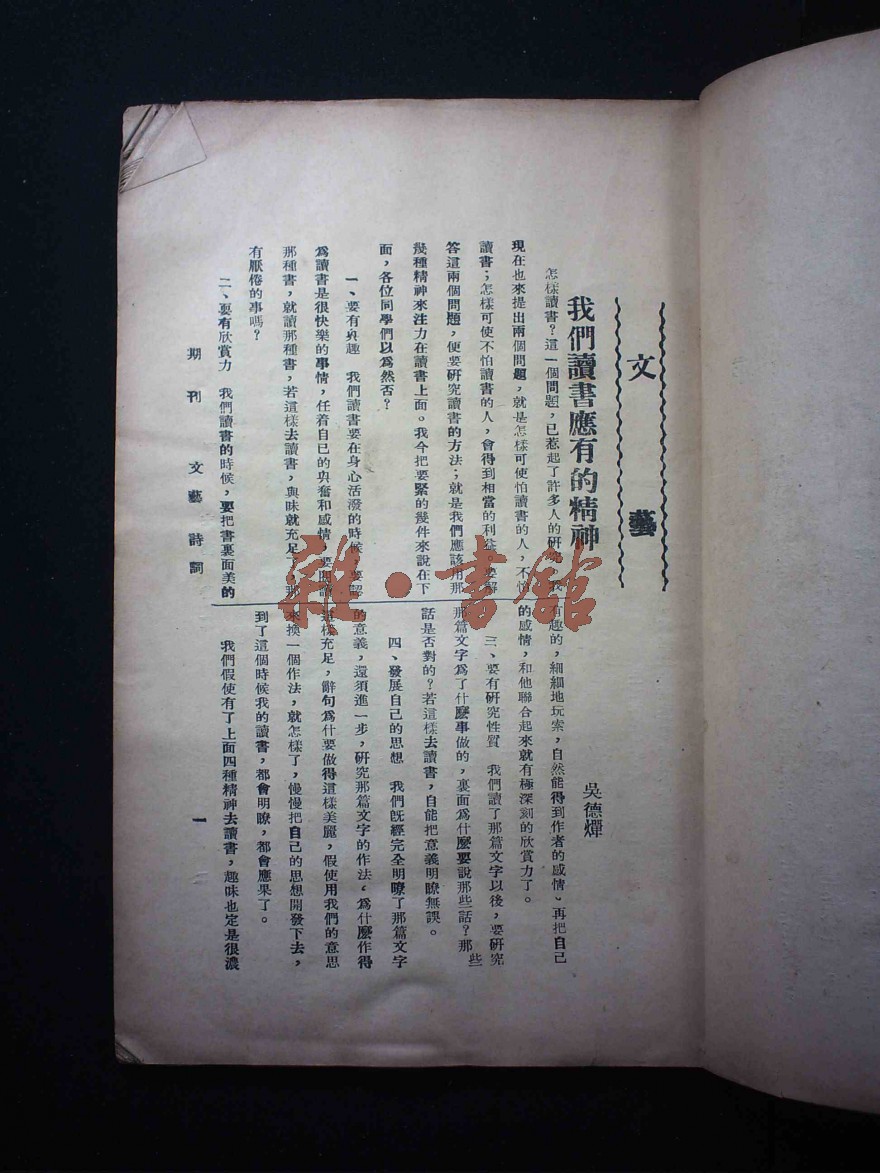 文藝
我們讀書應有的精神
吳德燀
怎樣讀書?這一個問題,已惹起了許多人的研究,我
現在也來提出兩個問題,就是怎樣可使怕讀書的人,不怕
讀書;怎樣可使不怕讀書的人,會得到相當的利益,要解
答這兩個問題,便要研究讀書的方法;就是我們應該用那
幾種精神來注力在讀書上面。我今把要緊的幾件來說在下
面,各位同學們以爲然否?
一、要有興趣 我們讀書要在身心活潑的時候,要認
爲讀書是很快樂的事情,任着自已的興奮和感情,要
那種書,就讀那種書,若這樣去讀書,興味就充足,那
有厭倦的事嗎?
二、要有欣賞力 我們讀書的時候,要把書裏面美的
有趣的,細細地玩索,自然能得到作者的感情。再把自己
的感情,和他聯合起來就有極深刻的欣賞力了。
三、要有研究性質 我們讀了那篇文字以後,要研究
那篇文字爲了什麼事做的,裏面爲什麼要說那些話?那些
話是否對的?若這樣去讀書,自能把意義明瞭無誤。
四、發展自己的思想 我們旣經完全明瞭了那篇文字
的意義,還須進一步,研究那篇文字的作法,爲什麼作得
這樣充足,辭句爲什要做得這樣美麗,假使用我們的意思
來換一個作法,就怎樣了,慢慢把自己的思想開發下去,
到了這個時候我的讀書,都會明瞭,都會應果了。
我們假使有了上面四種精神去讀書,趣味也定是很濃
期刊 文藝詩詞
一
雜·書館